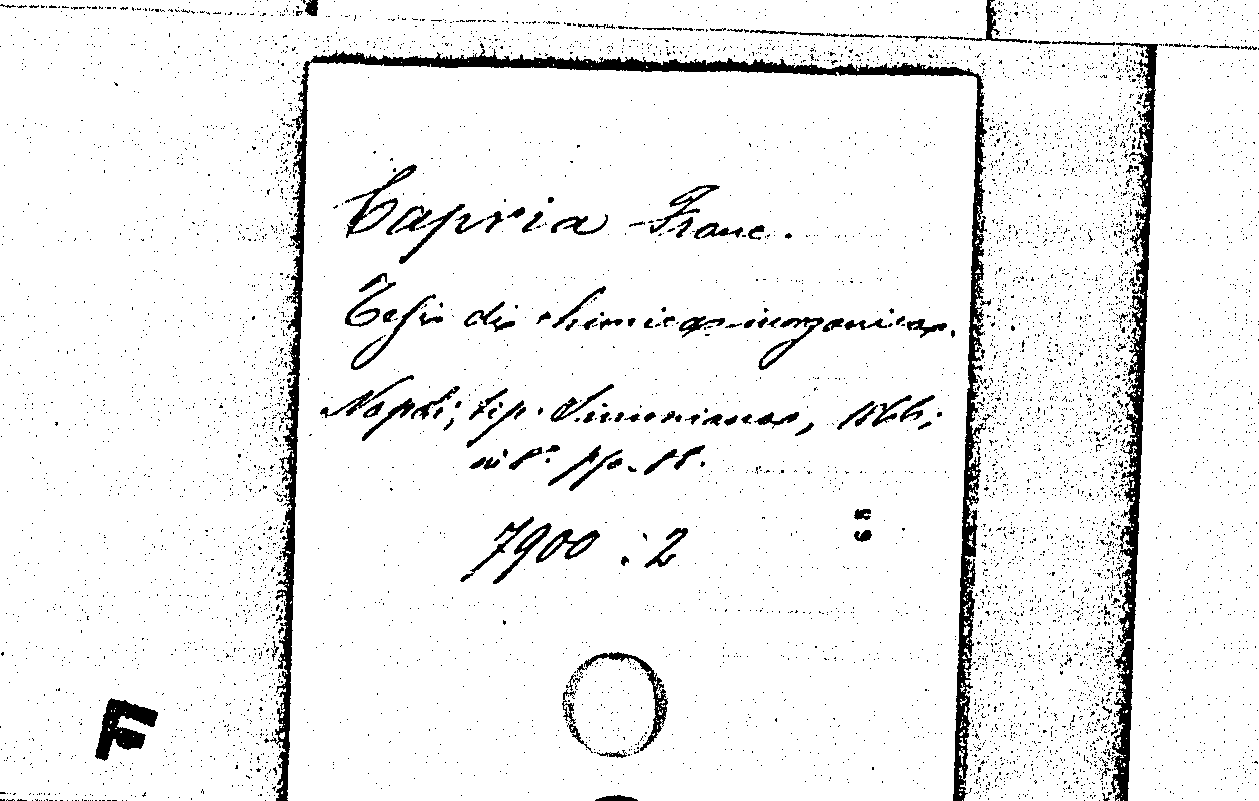 Capria Franc.
Tesi di chimica inorganica.
Napoli; tip. Simoniana, 1866;
in 8° pp. 18.
7900 : 2
F